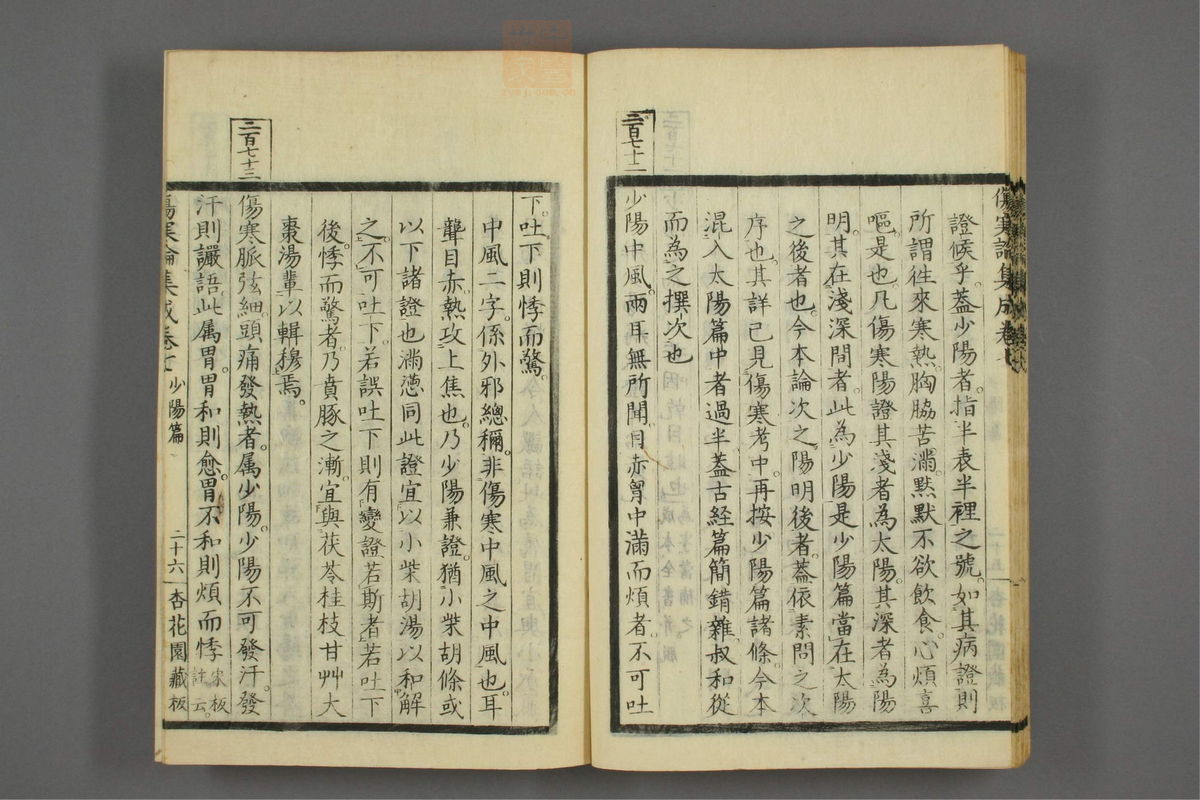 傷寒論集成卷
證候乎。蓋少陽者。指半表半裡之號。如其病證則
所謂徃來寒熱。胸脇苦滿。默默不欲飲食。心煩喜
嘔。是也。凡傷寒陽證。其淺者為太陽。其深者為陽
明。其在淺深間者。此為少陽。是少陽篇。當在太陽
之後者也。今本論次之。陽明後者。蓋依素問之次
序也。其詳已見傷寒考中。再按少陽篇諸條。今本
混入太陽篇中者過半。蓋古經篇簡錯雜。叔和從
而為之撰次也
二百七十二
少陽中風。兩耳無所聞。目赤胷中滿而煩者。不可吐
下。吐下則悸而驚。
中風二字。係外邪總稱。非傷寒中風之中風也。耳
聾目赤。熱攻上焦也。乃少陽兼證。猶小柴胡條或
以下諸證也。滿懣同。此證宜以小柴胡湯以和解
之。不可吐下。若誤吐下則有變證若斯者。若吐下
後悸而驚者。乃賁豚之漸。宜與茯苓桂枝甘艸大
棗湯輩。以輯穆焉。
二百七十三
傷寒脈弦細。頭痛發熱者。属少陽。少陽不可發汗。發
汗則讝語。此属胃。胃和則愈。胃不和則煩而悸
宋板
註云。
傷寒論集成卷七 少陽篇 二十六 杏花園藏板